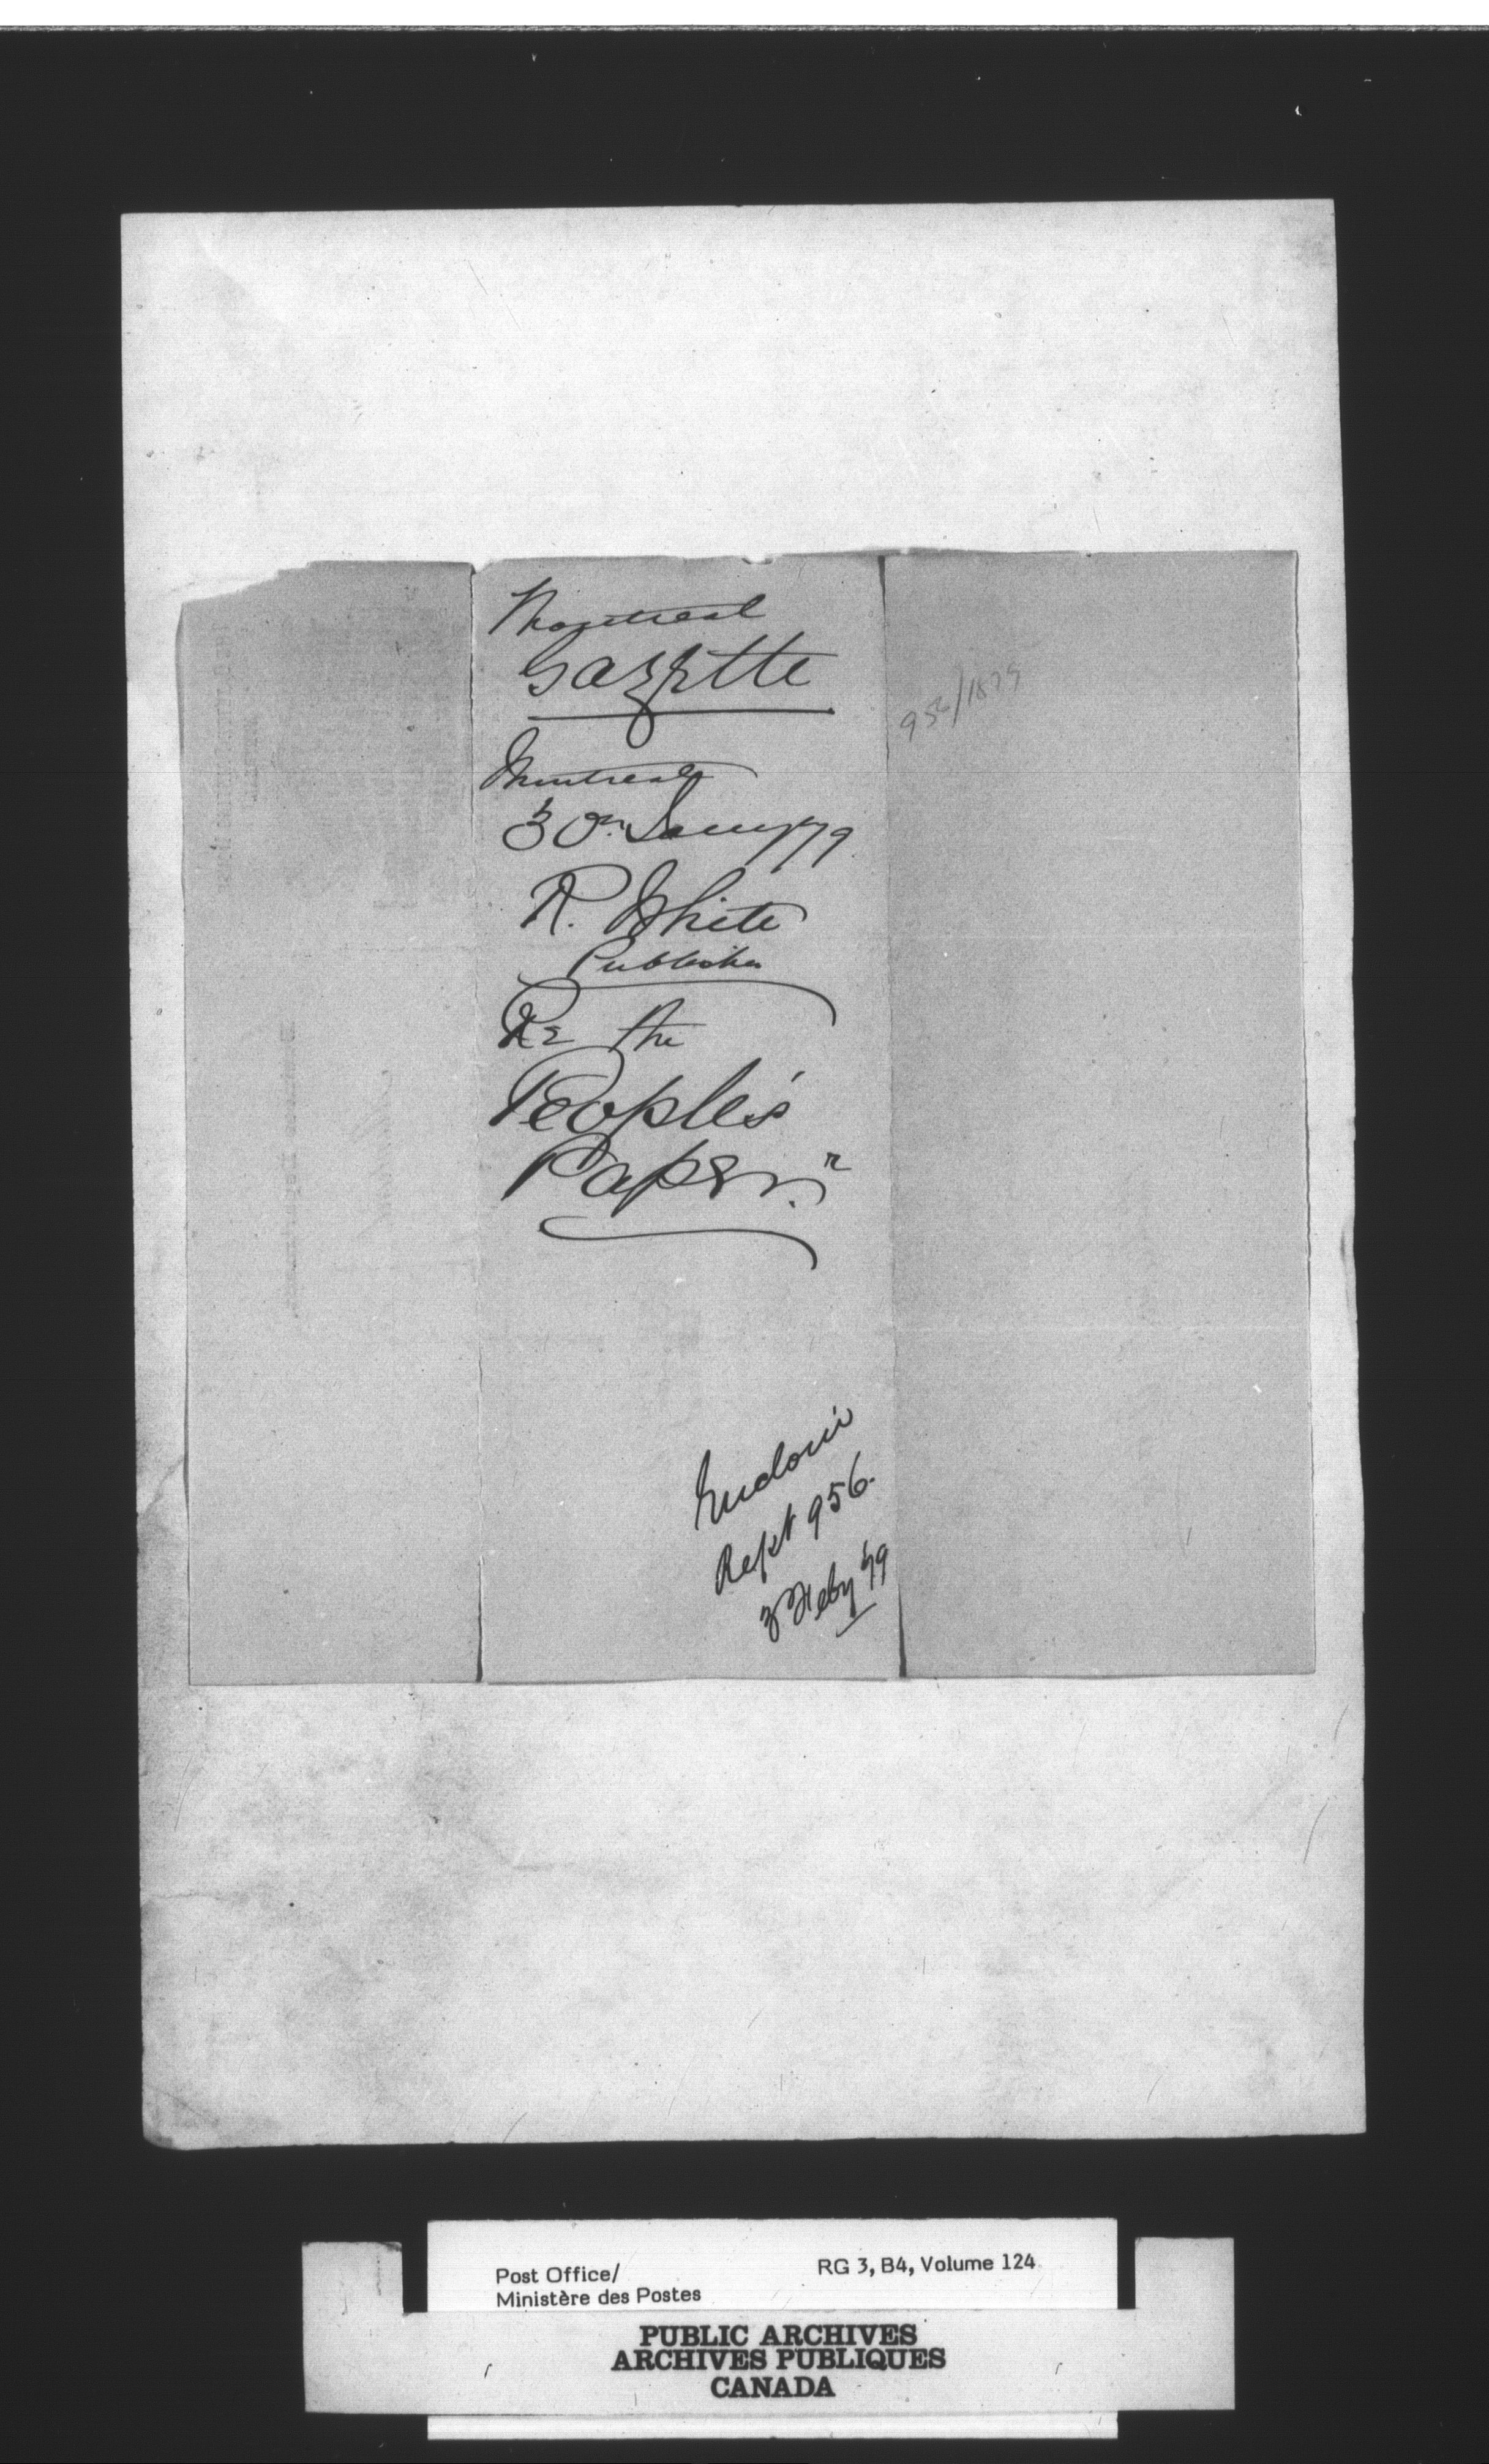 Montreal
Gazette
Montreal
30th Jany/79
R. White
Publisher
Re the
People's
Paper."
956/1879
Rept 956.
3 Feby '79
Post Office/
Ministère des Postes
RG 3, B4, Volume 124
PUBLIC ARCHIVES
ARCHIVES PUBLIQUES
CANADA